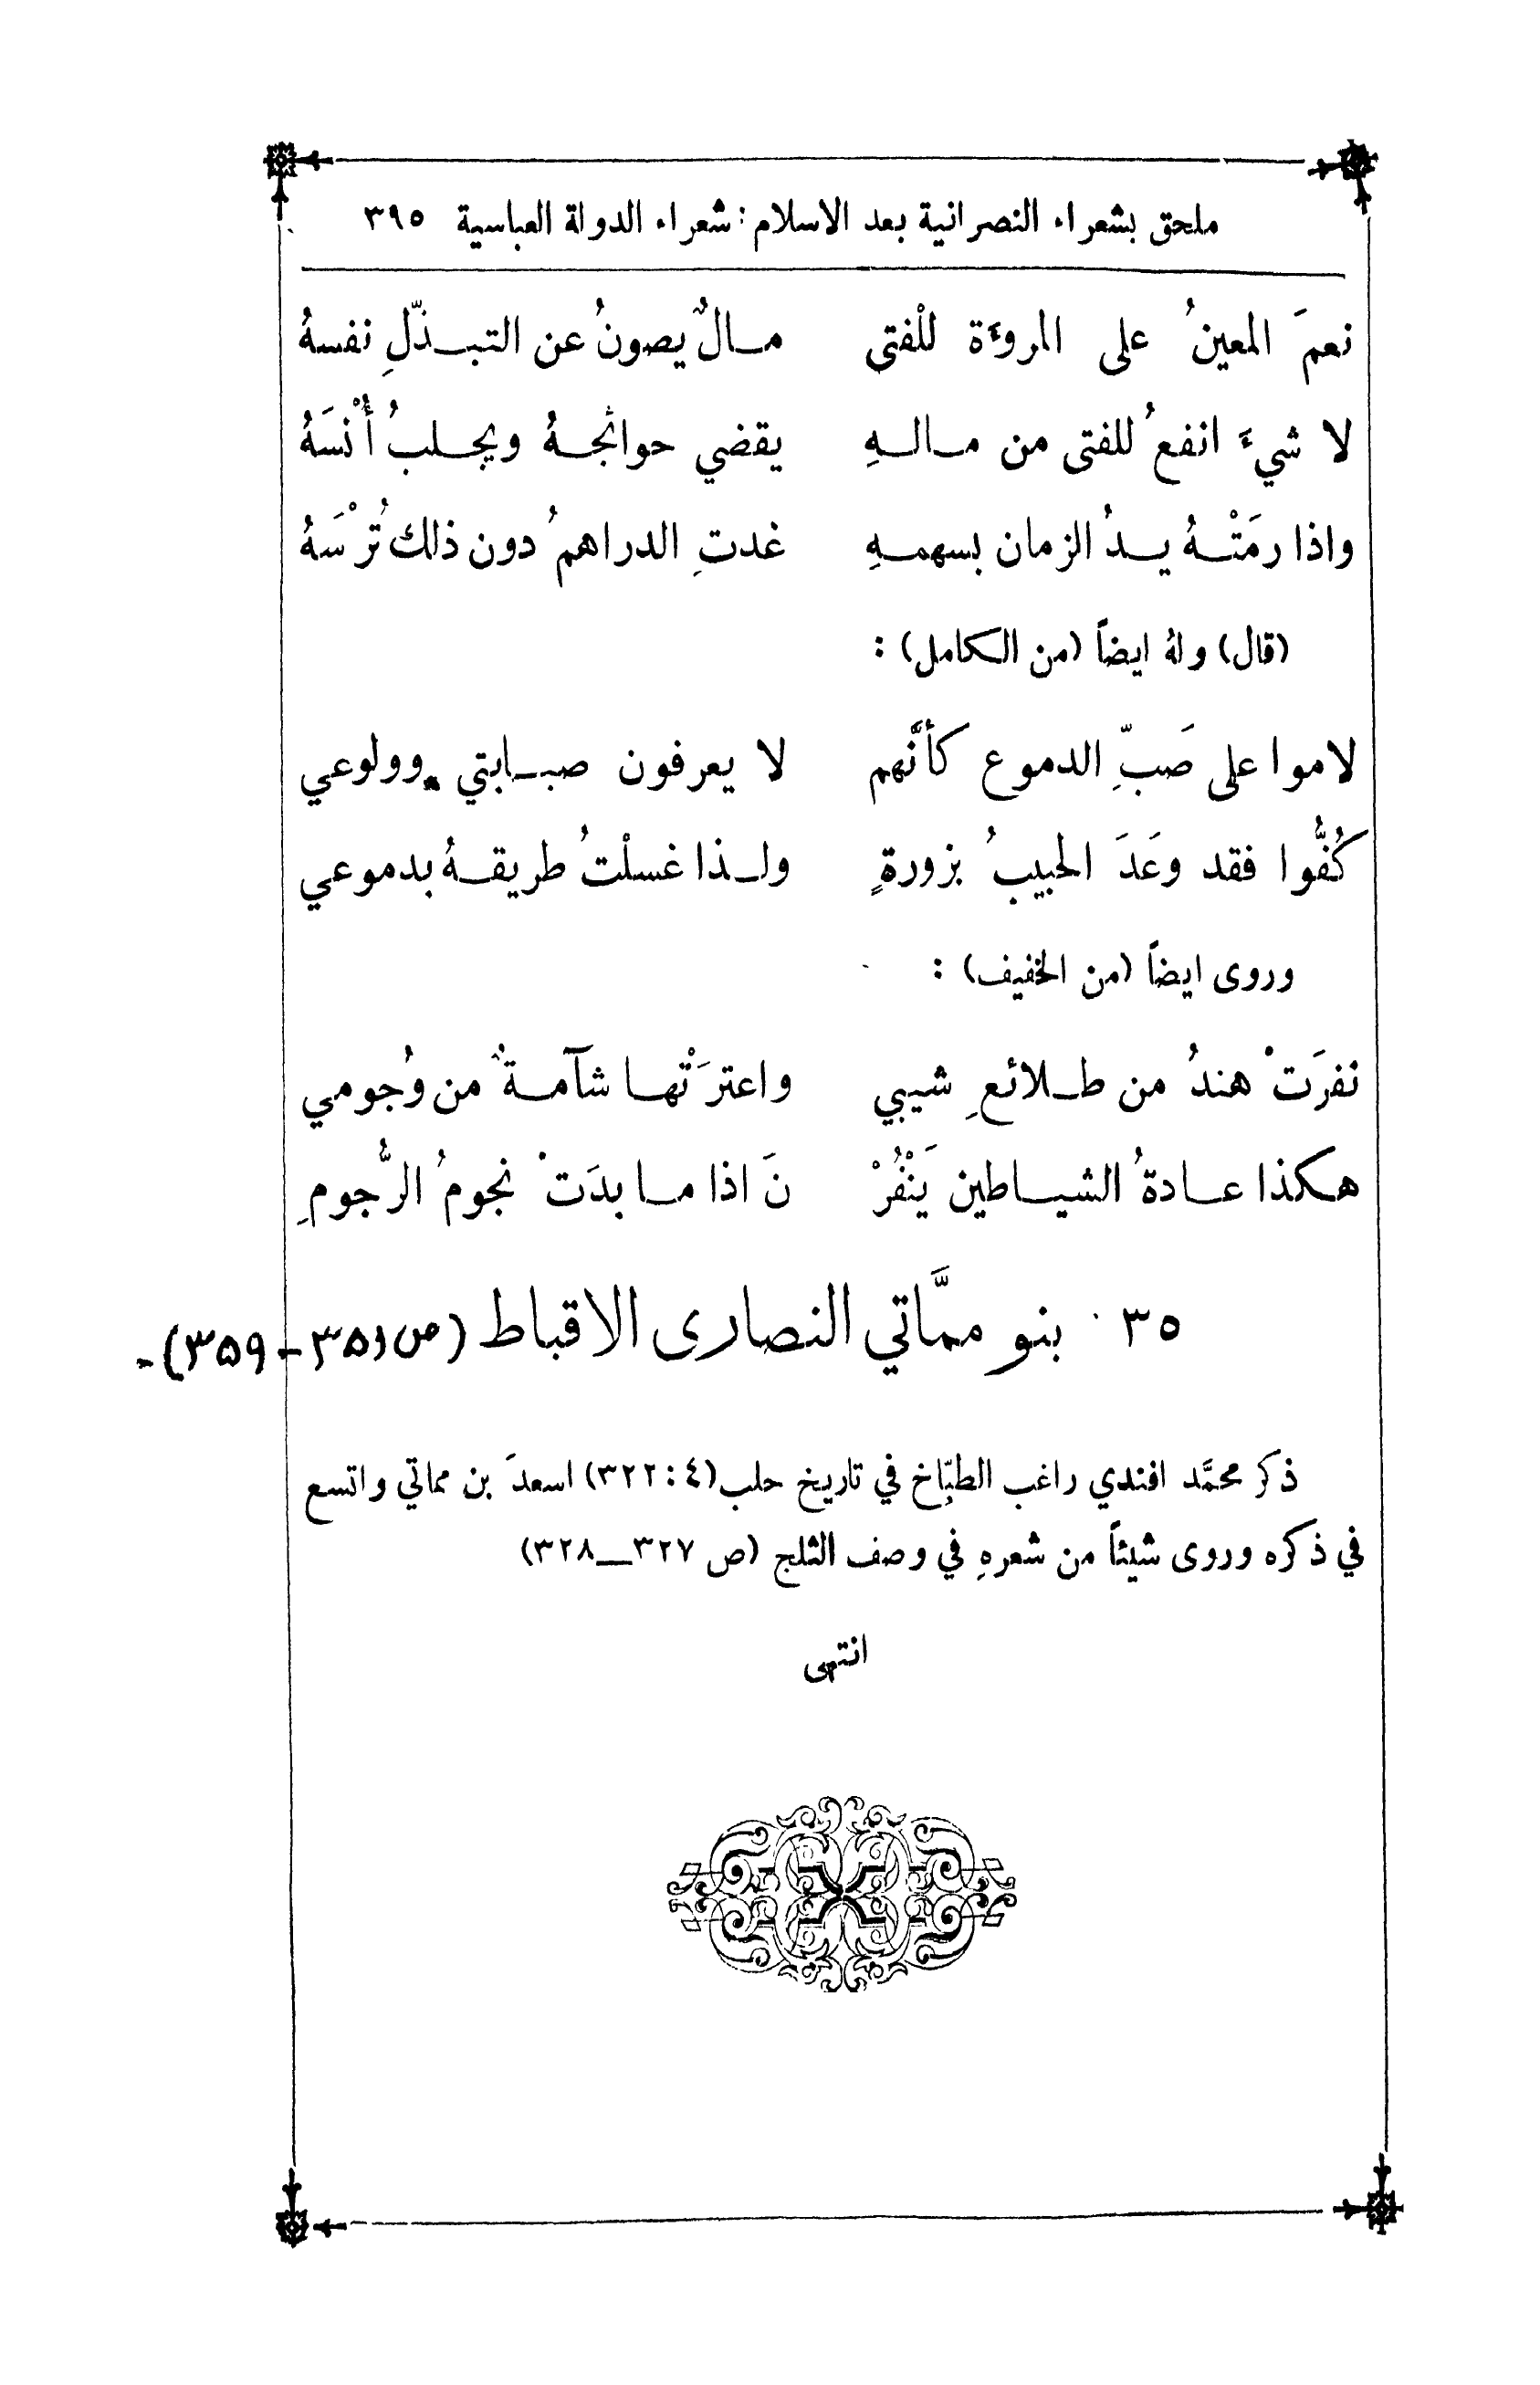 ملحق بشعراء النصرانية بعد الاسلام : شعراء الدولة العباسية ٣٩٥
نعمَ المعينُ على المروءَة للْفتى مالٌ يصونُ عن التبذّلِ نفسهُ
لا شيءَ انفعُ للفتى من مالهِ يقضي حوائجهُ ويجلبُ أُنْسَهُ
واذا رمَتْهُ يدُ الزمان بسهمهِ غدتِ الدراهمُ دون ذلك تُرْسَهُ
(قال) ولهُ ايضاً (من الكامل) :
لاموا على صَبِّ الدموع كأنَّهم لا يعرفون صبابتي وولوعي
كُفُّوا فقد وعَدَ الحبيبُ بزورةٍ ولذا غسلْتُ طريقهُ بدموعي
وروى ايضاً (من الخفيف) :
نفرَتْ هندُ من طلائعِ شيبي واعترَتْها شآمةٌ من وُجومي
هكذا عادةُ الشياطين يَنْفُرْ نَ اذا ما بدَتْ نجومُ الرُّجومِ
٣٥ بنو ممَّاتي النصارى الاقباط (ص ٣٥٩-٣٥)
ذكر محمَّد افندي راغب الطبّاخ في تاريخ حلب (٤ : ٣٢٢) اسعدَ بن مماتي واتسع
في ذكره وروى شيئاً من شعرهِ في وصف الثلج (ص ٣٢٧–٣٢٨)
انتهى